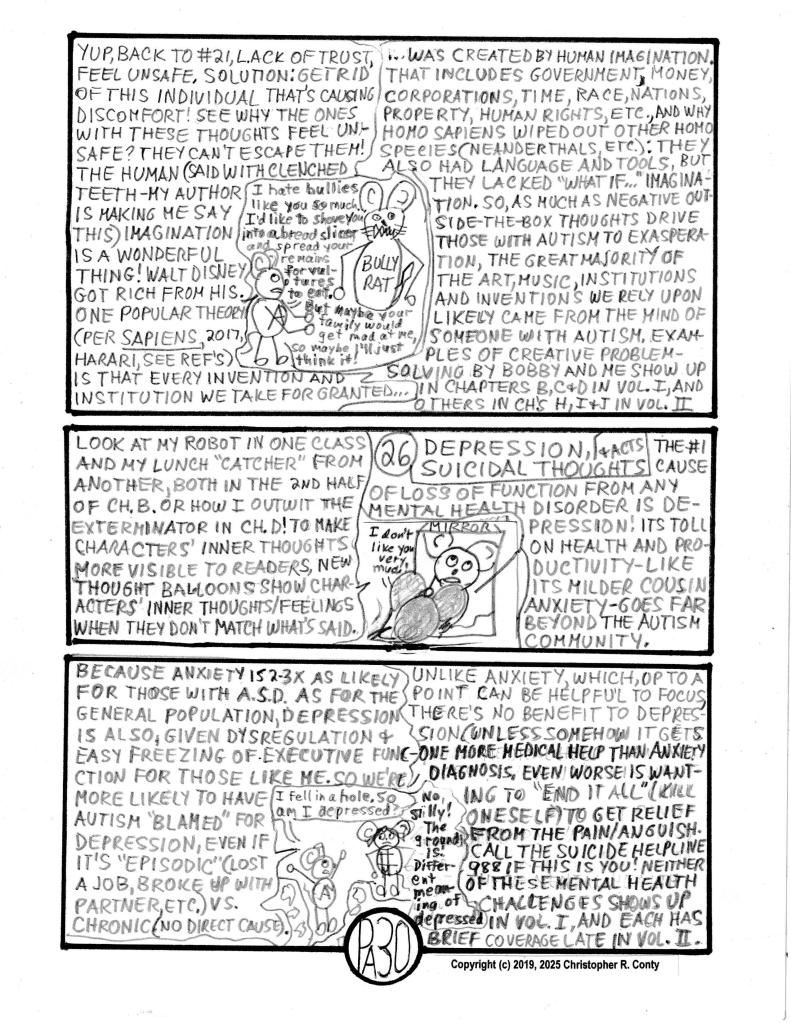 YUP, BACK TO #21, LACK OF TRUST,
FEEL UNSAFE, SOLUTION: GET RID
OF THIS INDIVIDUAL THAT'S CAUSING
DISCOMFORT! SEE WHY THE ONES
WITH THESE THOUGHTS FEEL UN-
SAFE? THEY CAN'T ESCAPE THEM!
THE HUMAN (SAID WITH CLENCHED
TEETH-MY AUTHOR
IS MAKING ME SAY
THIS) IMAGINATION
IS A WONDERFUL
THING! WALT DISNEY
GOT RICH FROM HIS.
ONE POPULAR THEORY
(PER SAPIENS, 2017,
HARARI, SEE REF'S)
IS THAT EVERY INVENTION AND
INSTITUTION WE TAKE FOR GRANTED...
I hate bullies
like you so much
I'd like to shove you
into a bread slicer
and spread your
remains
for vul-
tures
to eat.
But maybe your
family would
get mad at me,
so maybe I'll just
think it!
BULLY
RAT
A
... WAS CREATED BY HUMAN IMAGINATION.
THAT INCLUDES GOVERNMENT, MONEY,
CORPORATIONS, TIME, RACE, NATIONS,
PROPERTY, HUMAN RIGHTS, ETC., AND WHY
HOMO SAPIENS WIPED OUT OTHER HOMO
SPECIES (NEANDERTHALS, ETC.): THEY
ALSO HAD LANGUAGE AND TOOLS, BUT
THEY LACKED "WHAT IF..." IMAGINA-
TION. SO, AS MUCH AS NEGATIVE OUT-
SIDE-THE-BOX THOUGHTS DRIVE
THOSE WITH AUTISM TO EXASPERA-
TION, THE GREAT MAJORITY OF
THE ART, MUSIC, INSTITUTIONS
AND INVENTIONS WE RELY UPON
LIKELY CAME FROM THE MIND OF
SOMEONE WITH AUTISM. EXAM-
PLES OF CREATIVE PROBLEM-
SOLVING BY BOBBY AND ME SHOW UP
IN CHAPTERS B, C & D IN VOL. I, AND
OTHERS IN CH'S H, I & J IN VOL. II
LOOK AT MY ROBOT IN ONE CLASS
AND MY LUNCH "CATCHER" FROM
ANOTHER, BOTH IN THE 2ND HALF
OF CH. B. OR HOW I OUTWIT THE
EXTERMINATOR IN CH. D! TO MAKE
CHARACTERS' INNER THOUGHTS
MORE VISIBLE TO READERS, NEW
THOUGHT BALLOONS SHOW CHAR-
ACTERS' INNER THOUGHTS/FEELINGS
WHEN THEY DON'T MATCH WHAT'S SAID.
26 DEPRESSION, & ACTS THE #1
SUICIDAL THOUGHTS CAUSE
OF LOSS OF FUNCTION FROM ANY
MENTAL HEALTH DISORDER IS DE-
PRESSION! ITS TOLL
ON HEALTH AND PRO-
DUCTIVITY-LIKE
ITS MILDER COUSIN
ANXIETY-GOES FAR
BEYOND THE AUTISM
COMMUNITY.
MIRROR
I don't
like you
very
much!
BECAUSE ANXIETY IS 2-3X AS LIKELY
FOR THOSE WITH A.S.D. AS FOR THE
GENERAL POPULATION, DEPRESSION
IS ALSO, GIVEN DYSREGULATION &
EASY FREEZING OF EXECUTIVE FUN-
CTION FOR THOSE LIKE ME. SO WE'RE
MORE LIKELY TO HAVE
AUTISM "BLAMED" FOR
DEPRESSION, EVEN IF
IT'S "EPISODIC" (LOST
A JOB, BROKE UP WITH
PARTNER, ETC.) VS.
CHRONIC (NO DIRECT CAUSE).
I fell in a hole. So
am I depressed?
No,
silly!
The
ground
is.
Differ-
ent
mean-
ing of
depressed
A
UNLIKE ANXIETY, WHICH, UP TO A
POINT CAN BE HELPFUL TO FOCUS,
THERE'S NO BENEFIT TO DEPRES-
SION (UNLESS SOMEHOW IT GETS
ONE MORE MEDICAL HELP THAN ANXIETY
DIAGNOSIS. EVEN WORSE IS WANT-
ING TO "END IT ALL" (KILL
ONESELF) TO GET RELIEF
FROM THE PAIN/ANGUISH.
CALL THE SUICIDE HELPLINE
988 IF THIS IS YOU! NEITHER
OF THESE MENTAL HEALTH
CHALLENGES SHOWS UP
IN VOL. I, AND EACH HAS
BRIEF COVERAGE LATE IN VOL. II.
PA30
Copyright (c) 2019, 2025 Christopher R. Conty